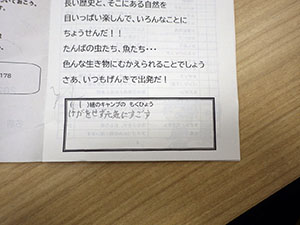 長い歴史と、そこにある自然を
目いっぱい楽しんで、いろんなことに
ちょうせんだ！！
たんぼの虫たち、魚たち・・・
色んな生き物にむかえられることでしょう
さあ、いつもげんきで出発だ！
(　)組のキャンプの もくひょう
けがをせず元気にすごす
178